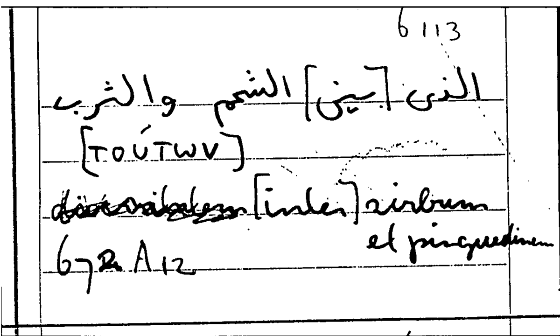 6 113
الذى [بين] الشحم والثرب
[τούτων]
[inter] zirbum
et pinguedinem
672 A12